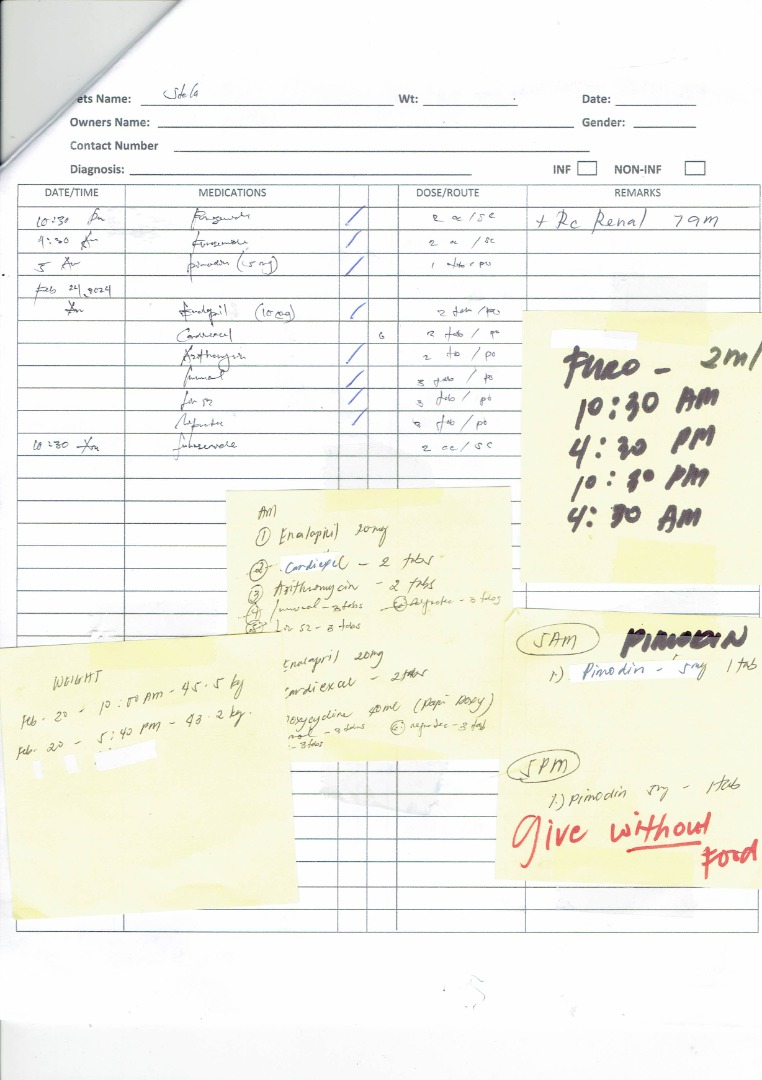 ets Name: Stela Wt: Date:
Owners Name: Gender:
Contact Number
Diagnosis: INF NON-INF
DATE/TIME MEDICATIONS DOSE/ROUTE REMARKS
10:30 Pm Furosemide 2 cc / SC + Rc Renal 79m
4:30 Am Furosemide 2 cc / SC
5 Am pimodin (5mg) 1 tab / po
Feb 24, 2024
Am Enalapril 2 tab / po
Cardiexcel 6 2 tab / po
Azithromycin 2 tb / po
Immunol 3 tab / po
Liv 52 3 tab / po
3 tab / po
10:30 Am furosemide 2 cc / SC
FURO - 2ml
10:30 AM
4:30 PM
10:30 PM
4:30 AM
AM
① Enalapril 20mg
② Cardiexel - 2 tabs
③ Azithromycin - 2 tabs
④ Immunol - 3 tabs ⑥ Neprotec - 3 tabs
⑤ Liv 52 - 3 tabs
Enalapril 20mg
Cardiexcel - 2 tabs
oxycycline 40ml (Papi Doxy)
nol - 3 tabs ⑥ neprotec - 3 tab
- 3 tabs
WEIGHT
Feb. 20 - 10:00 AM - 45.5 kg
Feb. 20 - 5:40 PM - 43.2 kg.
5AM PIMODIN
1.) Pimodin - 5mg 1 tab
5PM
1.) Pimodin 5mg - 1 tab
Give without
Food